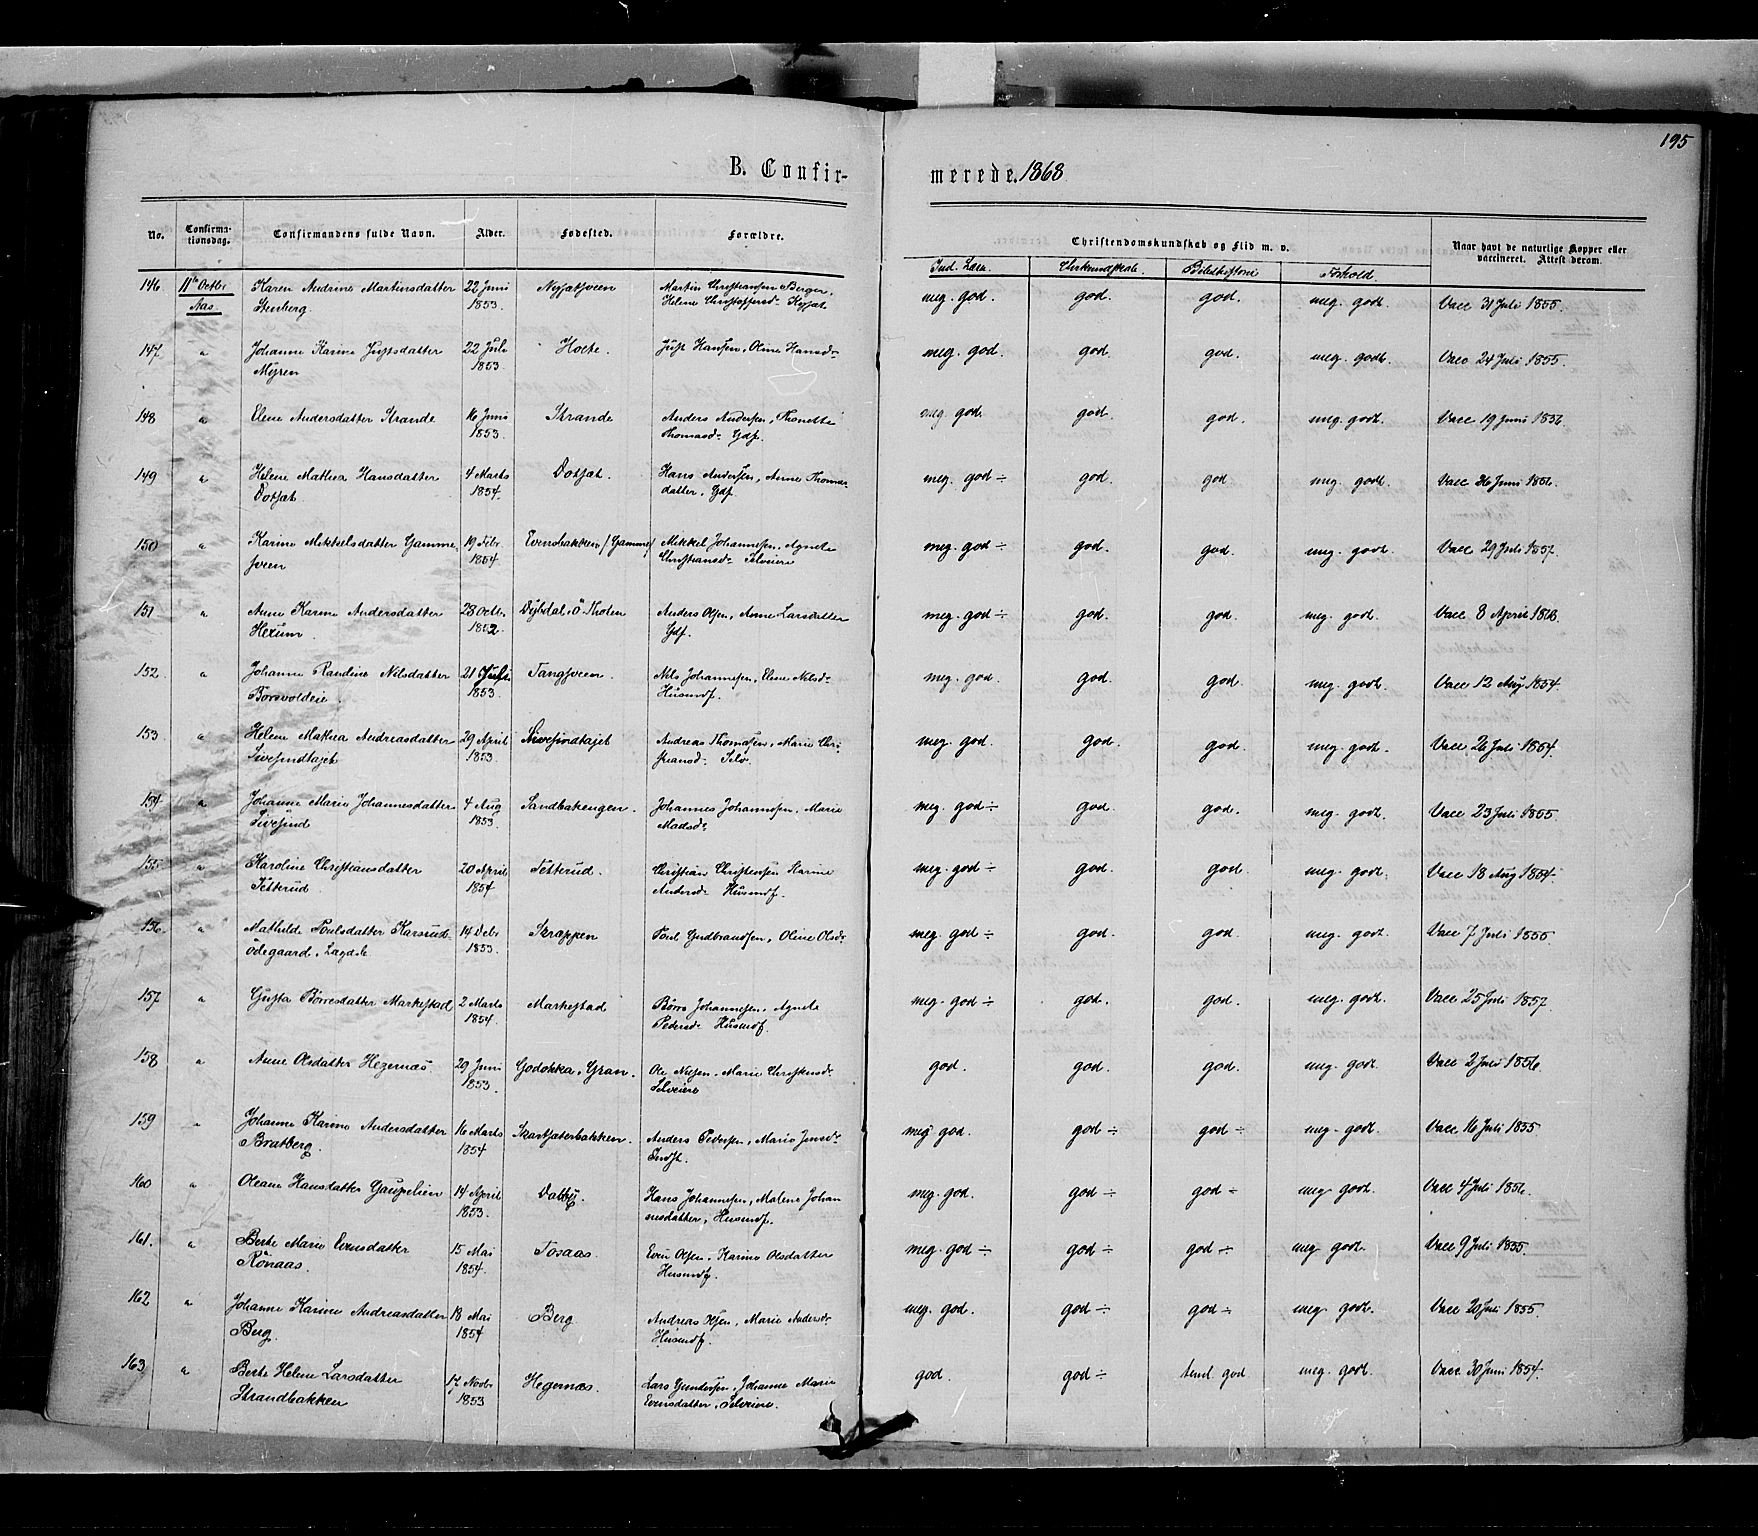 195
B. Confirmerede. 1868
No. Confirmationsdag. Confirmandens fulde Navn. Alder. Fødested. Forældre. Christendomskundskab og Flid m. v. Naar havt de naturlige Kopper eller vaccineret. Attest derom.
Ind. Læsn. Bibelhistorie Forhold.
146. 11te Octbr Aas Karen Andrine Martinsdatter Stenberg. 22 Juni 1853. Martin Christiansen Berger, Helene Christoffersd. meg. god. god. god. meg. godt. Vacc 31 Juli 1855.
147. " Johanne Karine Justsdatter Myren 22 Juli 1853. Hoete. Just Hansen, Oline Hansd. meg. god. god. god. meg. godt. Vacc 24 Juli 1855.
148 " Elene Andersdatter Strande 16 Juni 1853. Strande Anders Andersen, Thonette Thomasd. Gdf. meg. god. god. god. meg. godt. Vacc 19 Juni 1856.
149 " Helene Mathea Hansdatter 4 Marts 1854. Hans Andersen, Anne Thomasdatter, Gdf. meg. god ÷ god. god meg. godt. Vacc 26 Juni 1856.
150 " Karine Mikkelsdatter Gammesveen 19 Febr. 1854 Evensbakken / Gamme / Mikkel Johannesen, Agnete Christiansd. Selveiere meg. god ÷ god. god. meg. godt. Vacc 29 Juli 1857.
151 " Anne Karine Andersdatter Hexum. 28 Octbr. 1852. Dyhdal, Ö. Thoten Anders Olsen, Anne Larsdatter Gdf. meg. god ÷ god. god. meg. godt. Vacc 8 April 1863.
152. " Johanne Randine Nilsdatter 21 Juli 1853. Tangsveen. Nils Johannesen, Elene Nilsd. Husmdf. meg. god. god. god. meg. godt. Vacc 12 Aug 1854.
153. " Helene Mathea Andreasdatter Sivesindhajet 29 April 1853. Sivesindhajet Andreas Thomasen, Marie Christiansd. Selv. meg. god. god. god. meg. godt. Vacc 26 Juli 1854.
154 " Johanne Marie Johannesdatter Sivesind 4 Aug 1853. Sandbakengen. Johannes Johannesen, Marie Madsd. meg. god ÷ god. god. meg. godt. Vacc 23 Juli 1855.
155. " Karoline Christiansdatter Tetterud. 20 April 1854 Tetterud. Christian Christensen Karine Andersd. Husmdf. meg. god ÷ god. god. meg. godt. Vacc 18 Aug 1854.
156. " Mathilde Poulsdatter Karsrud-ödegaard, Lagdst. 14 Debr 1853. Skrappen Poul Gudbrandsen, Oline Olsd. meg. god ÷ god. god. meg. godt. Vacc 7 Juli 1855.
157 " Gusta Börresdatter Markestad 2 Marts 1854. Markestad Börre Johannesen, Agnete Pedersd. Husmdf. meg. god ÷ god. god. meg. godt. Vacc 25 Juli 1857.
158 " Anne Olsdatter Hegernæs. 29 Juni 1853. Godokka, Gran. Ole Nilsen, Marie Christensd. Selveiere god. god. god. meg. godt. Vacc 2 Juli 1856.
159 " Johanne Karine Andersdatter Bratberg. 16 Marts 1854 Anders Pedersen, Marie Jensd. meg. god. god ÷ god ÷ meg. godt. Vacc 16 Juli 1855
160 " Oleane Hansdatter Gaupelien 14 April 1853. Dalby. Hans Johannesen, Malene Johannesdatter, Husmdf. meg. god. god ÷ god ÷ meg. godt. Vacc 4 Juli 1856.
161. " Berte Marie Evensdatter Rönaas. 15 Mai 1854. Tosaas. Even Olsen, Karine Olsdatter Husmdf. meg. god ÷ god ÷ god ÷ meg. godt. Vacc 9 Juli 1855.
162 " Johanne Karine Andreasdatter Berg. 18 Mai 1854 Berg Andreas Olsen, Marie Andersd. Husmdf. meg. god. god ÷ god ÷ meg. godt. Vacc 20 Juli 1855.
163 " Berte Helene Larsdatter Strandbakken 17 Novbr 1853 Hegernæs. Lars Gundersen, Johanne Marie Evensdatter, Selveiere. god. god ÷ temd. god meg. godt. Vacc 30 Juni 1854.